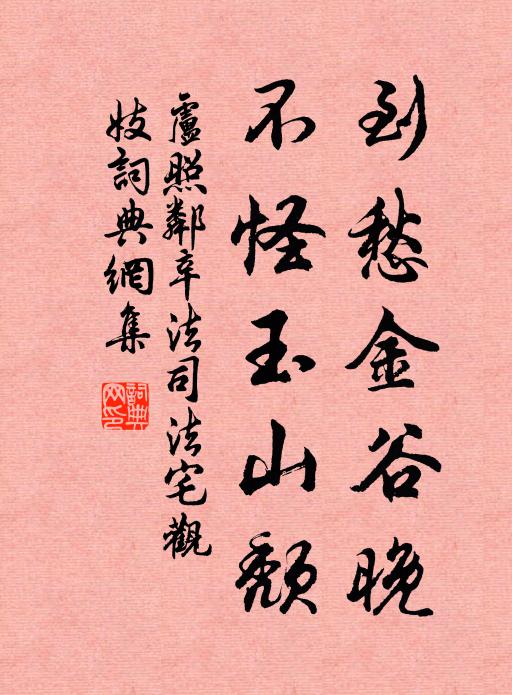 到愁金谷晚
不怪玉山頹
盧照鄰辛法司法宅觀
妓詞典網集
詞典網印